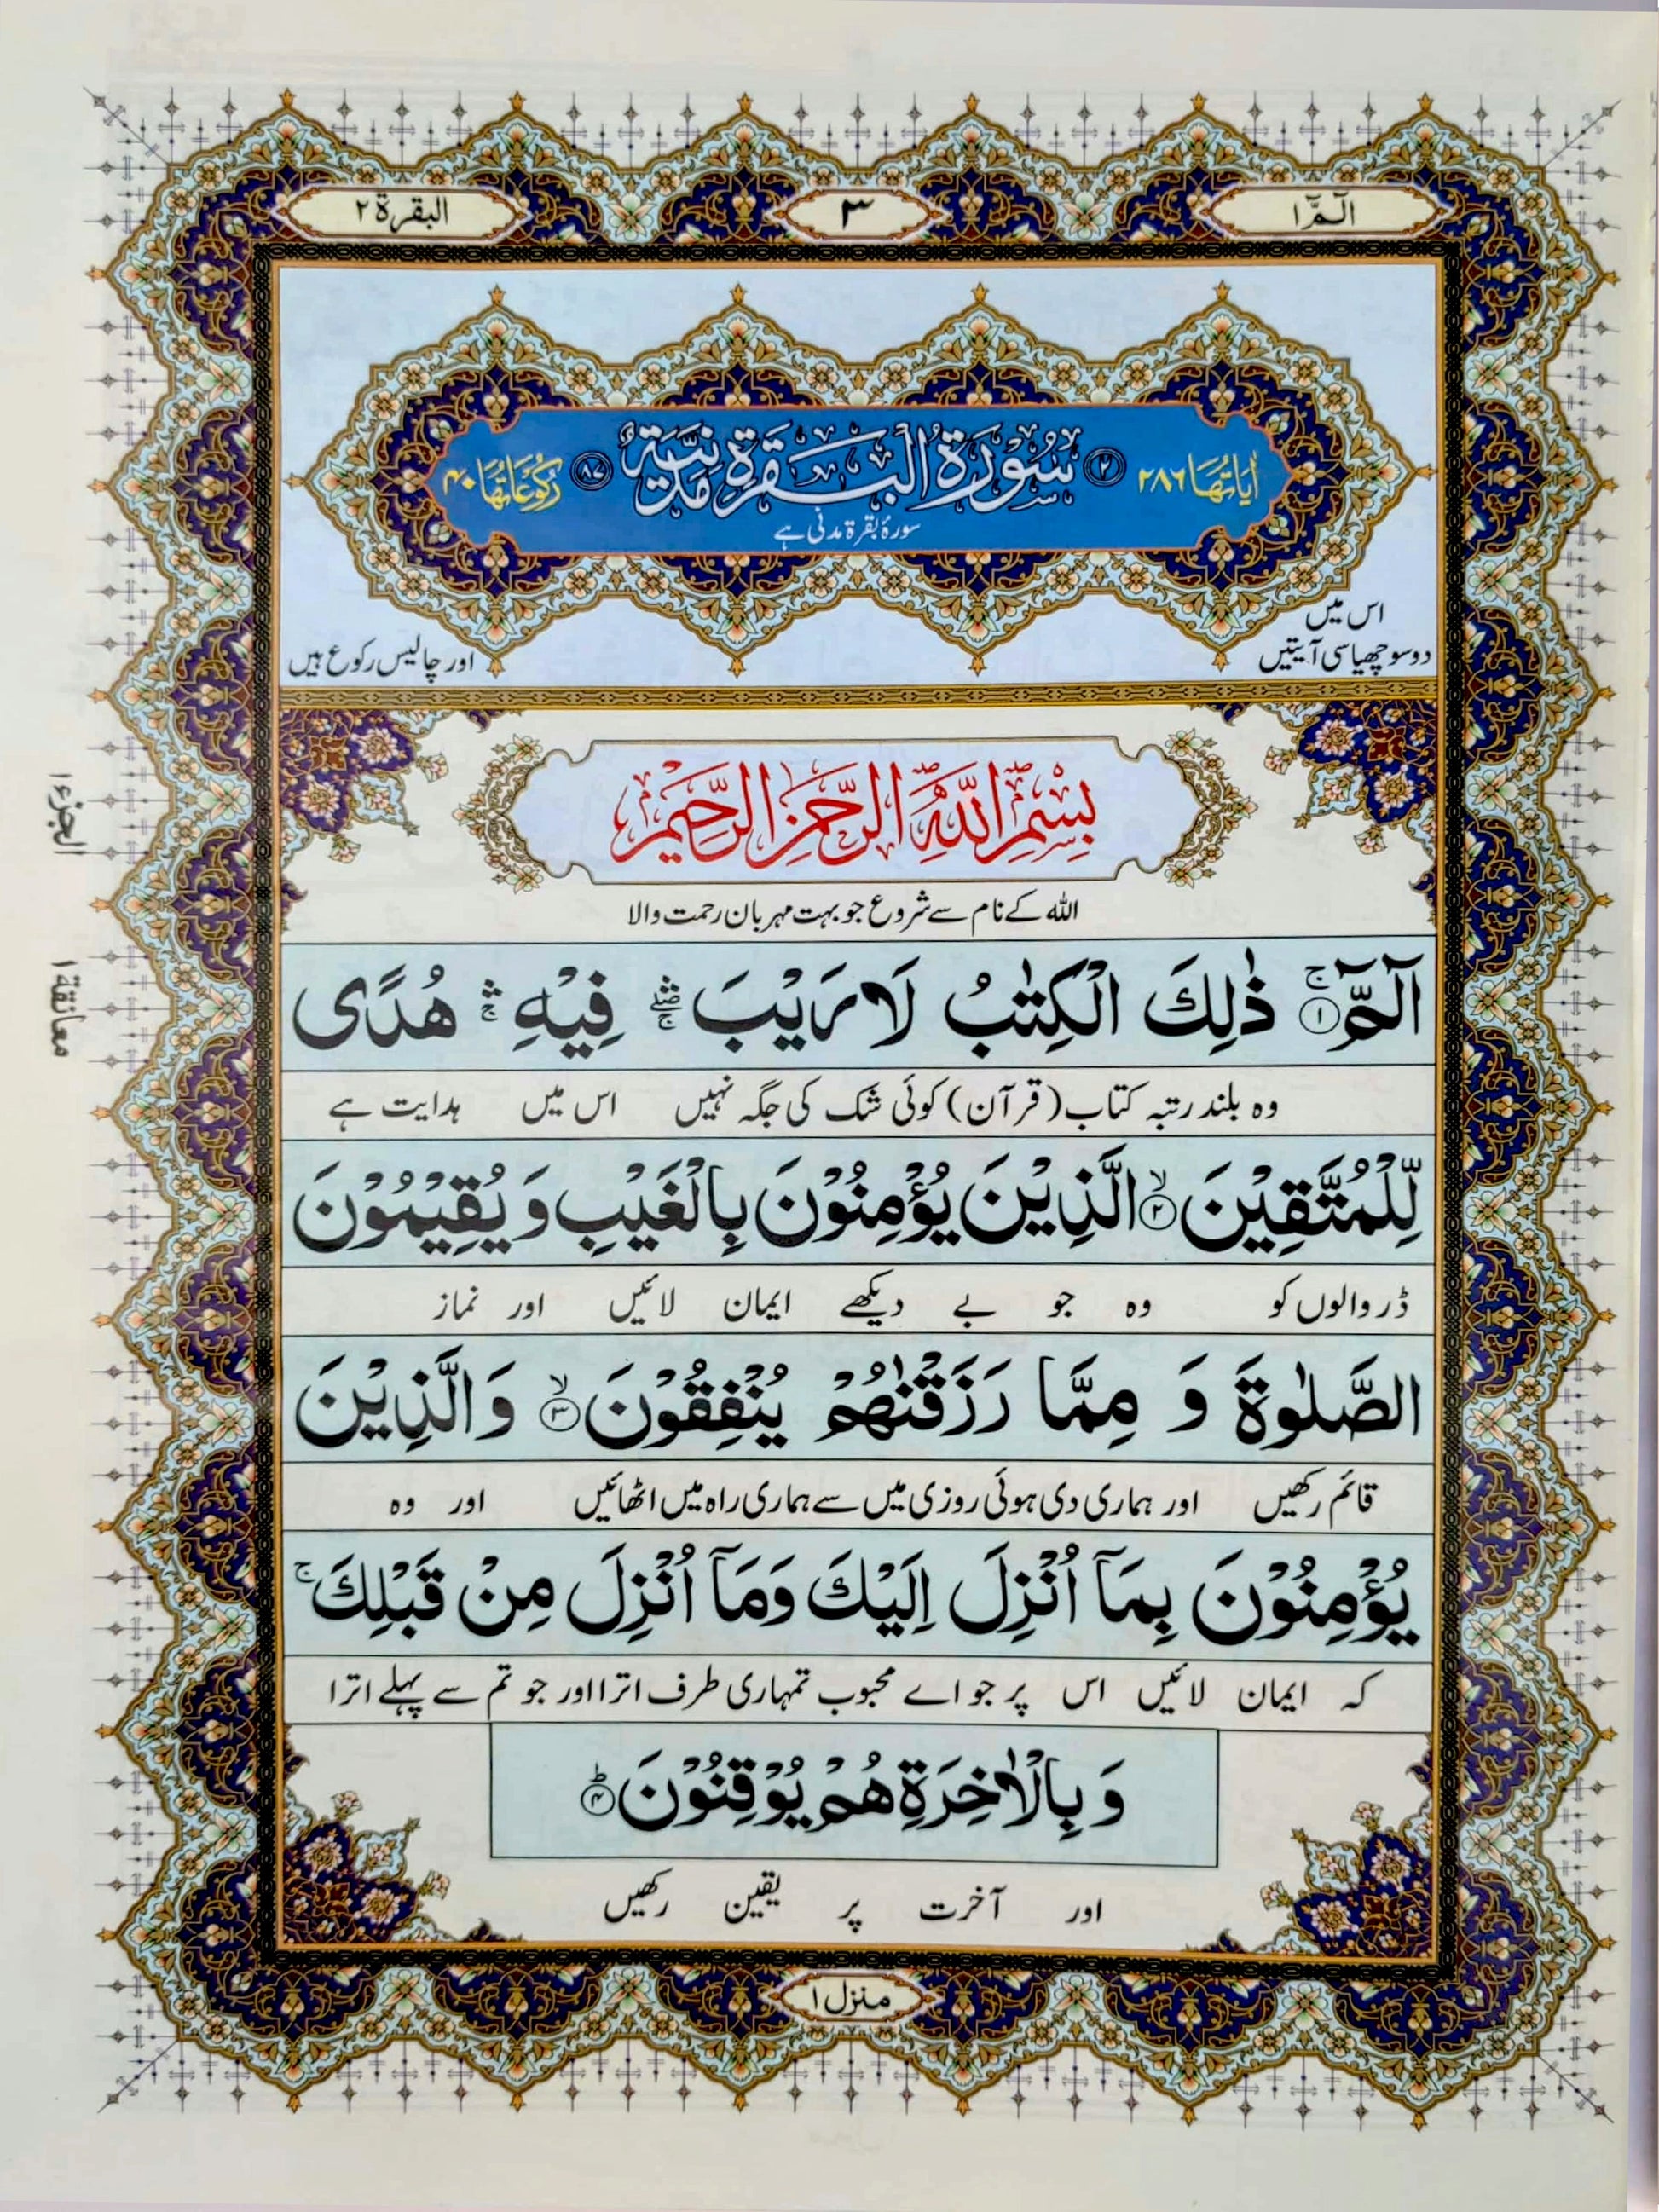 الٓمّٓ ۱
۳
البقرة ۲
اٰیَاتُهَا ۲۸۶
۲ سُوْرَةُ الْبَقَرَةِ مَدَنِيَّةٌ ۸۷
رُكُوْعَاتُهَا ۴۰
سورۂ بقرۃ مدنی ہے
اس میں
دو سو چھیاسی آیتیں
اور چالیس رکوع ہیں
بِسْمِ اللّٰهِ الرَّحْمٰنِ الرَّحِيْمِ
اللہ کے نام سے شروع جو بہت مہربان رحمت والا
الٓمّٓ ۚ﴿۱﴾ ذٰلِكَ الْكِتٰبُ لَا رَيْبَ ۛۖۚ فِيْهِ ۛۚ هُدًى
وہ بلند رتبہ کتاب (قرآن) کوئی شک کی جگہ نہیں اس میں ہدایت ہے
لِّلْمُتَّقِيْنَ ۙ﴿۲﴾ الَّذِيْنَ يُؤْمِنُوْنَ بِالْغَيْبِ وَ يُقِيْمُوْنَ
ڈر والوں کو وہ جو بے دیکھے ایمان لائیں اور نماز
الصَّلٰوةَ وَ مِمَّا رَزَقْنٰهُمْ يُنْفِقُوْنَ ۙ﴿۳﴾ وَالَّذِيْنَ
قائم رکھیں اور ہماری دی ہوئی روزی میں سے ہماری راہ میں اٹھائیں اور وہ
يُؤْمِنُوْنَ بِمَاۤ اُنْزِلَ اِلَيْكَ وَمَاۤ اُنْزِلَ مِنْ قَبْلِكَ ۚ
کہ ایمان لائیں اس پر جو اے محبوب تمہاری طرف اترا اور جو تم سے پہلے اترا
وَ بِالْاٰخِرَةِ هُمْ يُوْقِنُوْنَ ؕ﴿۴﴾
اور آخرت پر یقین رکھیں
منزل ۱
الجزء ۱
معانقة ۱